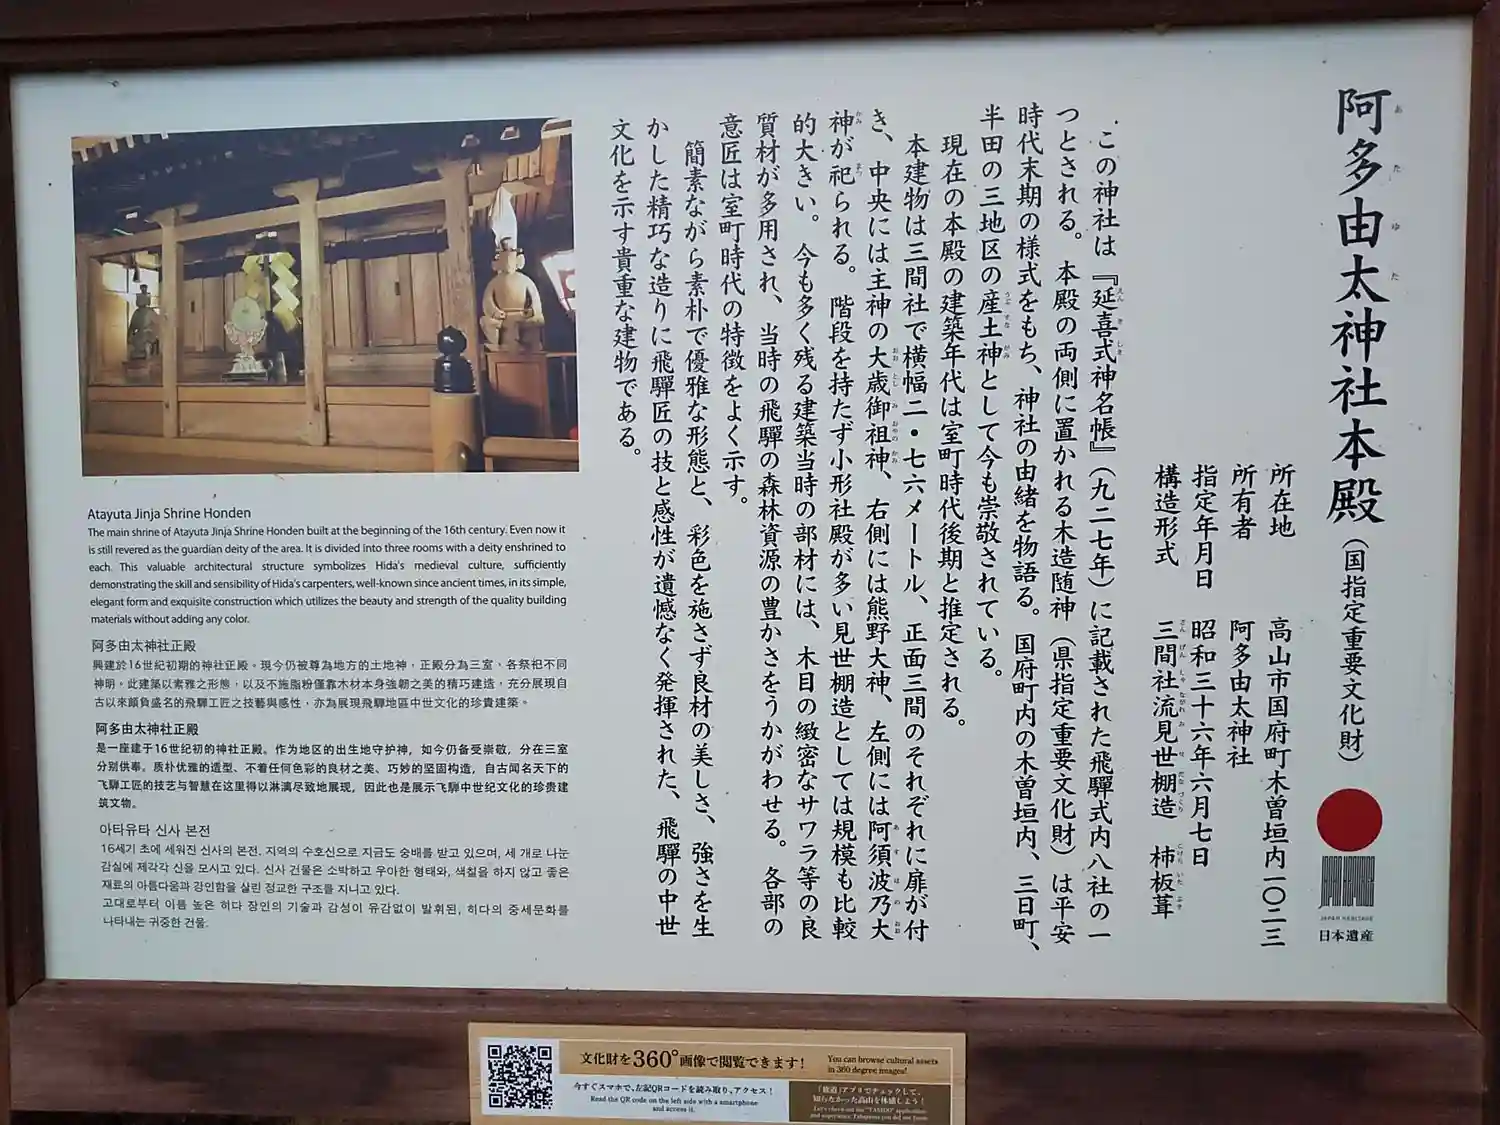 阿多由太神社本殿(国指定重要文化財)
あ た ゆ た
所在地 高山市国府町木曽垣内一〇二三
所有者 阿多由太神社
指定年月日 昭和三十六年六月七日
構造形式 三間社流見世棚造 杮板葺
さんげんしゃながれみせだなづくり こけらいたぶき
この神社は『延喜式神名帳』(九二七年)に記載された飛驒式内八社の一
えんぎしき
つとされる。本殿の両側に置かれる木造随神(県指定重要文化財)は平安
時代末期の様式をもち、神社の由緒を物語る。国府町内の木曽垣内、三日町、
半田の三地区の産土神として今も崇敬されている。
うぶすながみ
現在の本殿の建築年代は室町時代後期と推定される。
本建物は三間社で横幅二・七六メートル、正面三間のそれぞれに扉が付
き、中央には主神の大歳御祖神、右側には熊野大神、左側には阿須波乃大
おおとしみおやのかみ あすはのおお
神が祀られる。階段を持たず小形社殿が多い見世棚造としては規模も比較
かみ まつ
的大きい。今も多く残る建築当時の部材には、木目の緻密なサワラ等の良
質材が多用され、当時の飛驒の森林資源の豊かさをうかがわせる。各部の
意匠は室町時代の特徴をよく示す。
簡素ながら素朴で優雅な形態と、彩色を施さず良材の美しさ、強さを生
かした精巧な造りに飛驒匠の技と感性が遺憾なく発揮された、飛驒の中世
文化を示す貴重な建物である。
JAPAN HERITAGE
日本遺産
Atayuta Jinja Shrine Honden
The main shrine of Atayuta Jinja Shrine Honden built at the beginning of the 16th century. Even now it
is still revered as the guardian deity of the area. It is divided into three rooms with a deity enshrined to
each. This valuable architectural structure symbolizes Hida's medieval culture, sufficiently
demonstrating the skill and sensibility of Hida's carpenters, well-known since ancient times, in its simple,
elegant form and exquisite construction which utilizes the beauty and strength of the quality building
materials without adding any color.
阿多由太神社正殿
興建於16世紀初期的神社正殿。現今仍被尊為地方的土地神,正殿分為三室、各祭祀不同
神明。此建築以素雅之形態,以及不施脂粉僅靠木材本身強韌之美的精巧建造,充分展現自
古以來頗負盛名的飛驒工匠之技藝與感性,亦為展現飛驒地區中世文化的珍貴建築。
阿多由太神社正殿
是一座建于16世纪初的神社正殿。作为地区的出生地守护神,如今仍备受崇敬,分在三室
分别供奉。质朴优雅的造型、不着任何色彩的良材之美、巧妙的坚固构造,自古闻名天下的
飞驒工匠的技艺与智慧在这里得以淋漓尽致地展现,因此也是展示飞驒中世纪文化的珍贵建
筑文物。
아타유타 신사 본전
16세기 초에 세워진 신사의 본전. 지역의 수호신으로 지금도 숭배를 받고 있으며, 세 개로 나눈
감실에 제각각 신을 모시고 있다. 신사 건물은 소박하고 우아한 형태와, 색칠을 하지 않고 좋은
재료의 아름다움과 강인함을 살린 정교한 구조를 지니고 있다.
고대로부터 이름 높은 히다 장인의 기술과 감성이 유감없이 발휘된, 히다의 중세문화를
나타내는 귀중한 건물.
文化財を360°画像で閲覧できます!
You can browse cultural assets
in 360 degree images!
今すぐスマホで、左記QRコードを読み取り、アクセス!
Read the QR code on the left side with a smartphone
and access it.
「旅道」アプリでチェックして、
知らなかった高山を体感しよう!
Let's check out the "TABIDO" application
and experience Takayama you did not know.